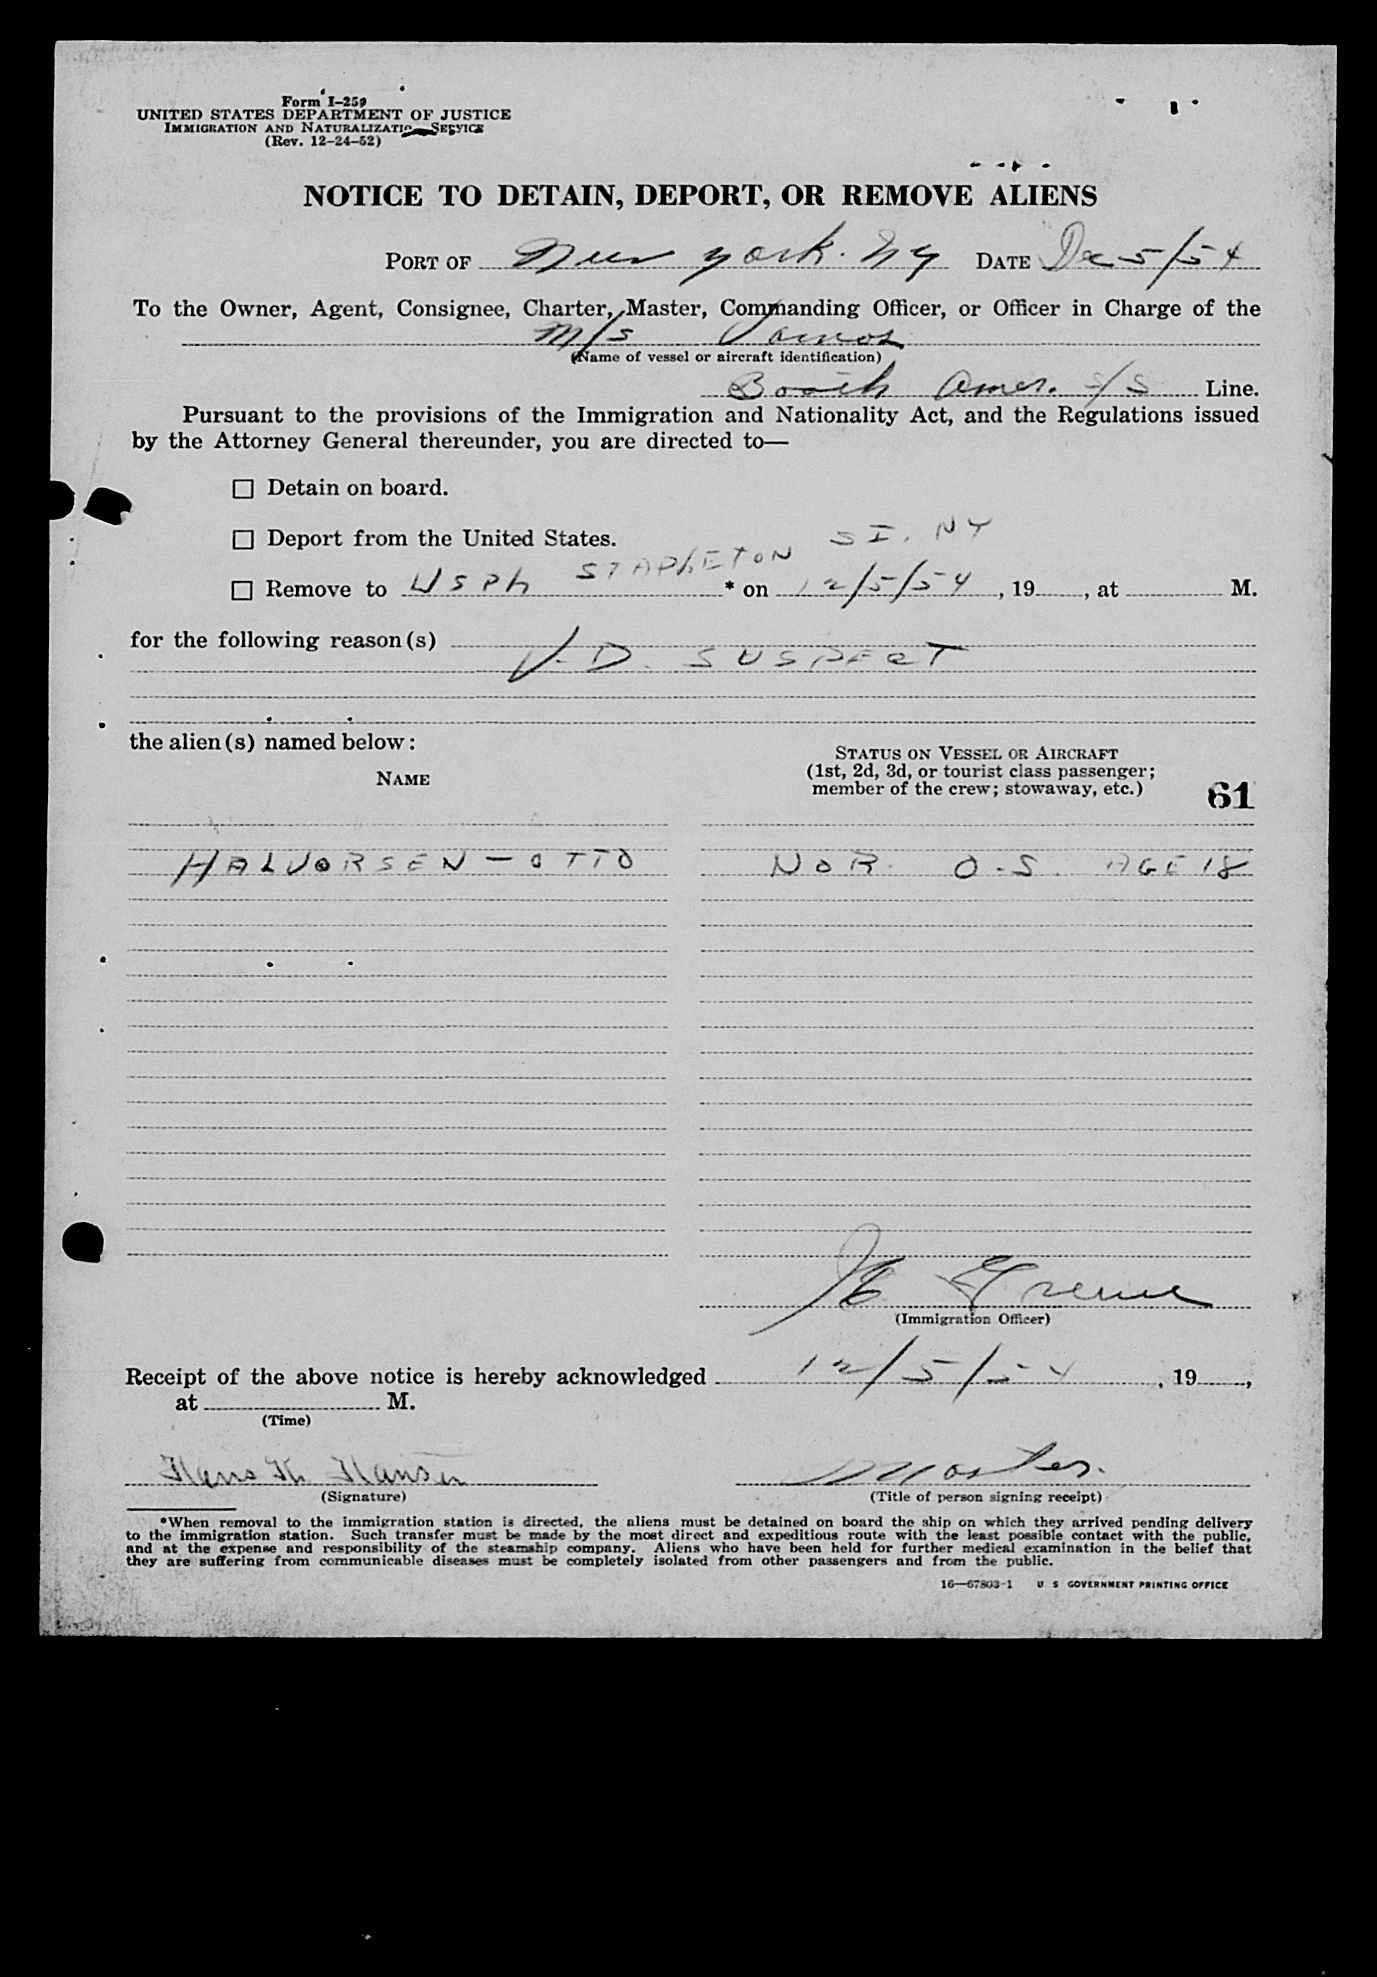 Form I-259
UNITED STATES DEPARTMENT OF JUSTICE
IMMIGRATION AND NATURALIZATION SERVICE
(Rev. 12-24-52)
NOTICE TO DETAIN, DEPORT, OR REMOVE ALIENS
PORT OF New York. NY DATE Dec 5/54
To the Owner, Agent, Consignee, Charter, Master, Commanding Officer, or Officer in Charge of the
M/S
(Name of vessel or aircraft identification)
Booth Amer. S/S Line.
Pursuant to the provisions of the Immigration and Nationality Act, and the Regulations issued
by the Attorney General thereunder, you are directed to—
☐ Detain on board.
☐ Deport from the United States.
☐ Remove to USPH STAPLETON SI. NY * on 12/5/54, 19 , at M.
for the following reason(s)
V.D. SUSPECT
the alien(s) named below:
NAME
STATUS ON VESSEL OR AIRCRAFT
(1st, 2d, 3d, or tourist class passenger;
member of the crew; stowaway, etc.)
61
HALVORSEN - OTTO NOR. O.S. AGE 18
Greene
(Immigration Officer)
Receipt of the above notice is hereby acknowledged 12/5/54, 19 ,
at M.
(Time)
Hans Hansen Master.
(Signature) (Title of person signing receipt)
*When removal to the immigration station is directed, the aliens must be detained on board the ship on which they arrived pending delivery
to the immigration station. Such transfer must be made by the most direct and expeditious route with the least possible contact with the public,
and at the expense and responsibility of the steamship company. Aliens who have been held for further medical examination in the belief that
they are suffering from communicable diseases must be completely isolated from other passengers and from the public.
16—67803-1 U S GOVERNMENT PRINTING OFFICE